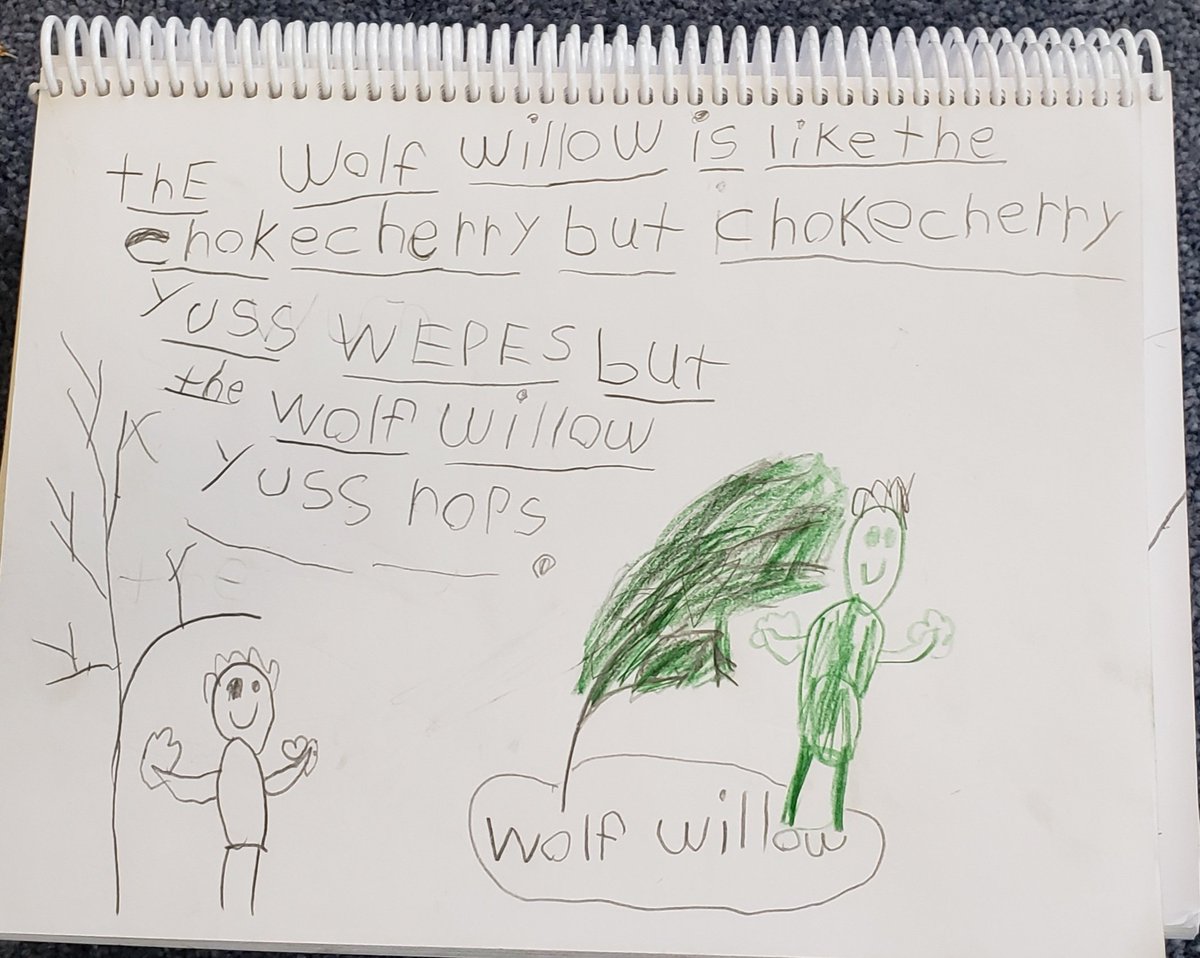 thE Wolf willow is like the
chokecherry but chokecherry
yuss WEPES but
the wolf willow
yuss nops.
wolf willow